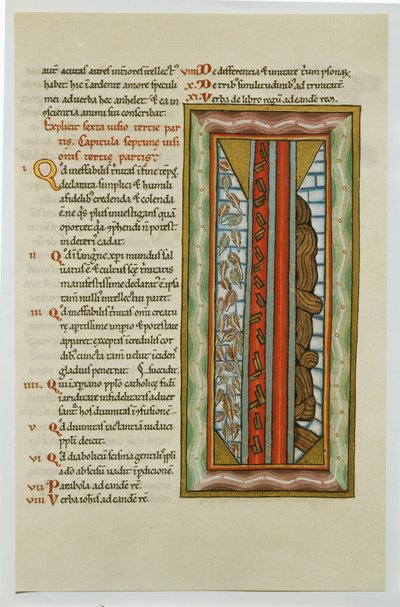 autē acutas aures intiores intellectꝰ
habet hic in ardente amore speculi
mei ad verba hec anhelet & ea in
ꝯscientia animi sui conscribat.
Explicit sexta visio tercie par
tis. Capitula septime visi
onis tercie partis.
I Qd ineffabilis trinitas in fine tēpoꝝ
declarata simplicit & humilit
a fidelibꝰ credenda & colenda
ē ne qˢ plus investigans quā
oportet qa ꝯphendi ñ potest
in deteriꝰ cadat.
II Qd in sangīne xpi mundus sal
vatus ē & cultus scē trinitatis
manifestissime declaratꝰ ē ipsa
tam̄ nulli intellectui patet.
III Qd ineffabilis trinitas om̄i creatu
re aptissime impio & potestate
apparet exceptis incredulis cor
dibꝰ cuncta tam̄ velut incidens
gladius penetrat. succidit.
IIII. Qui in xpiano pplo catholice fidei
in ariditate infidelitatis adver
sant hos divinitas in ꝯfusione
V Qd divinitas iactantiā iudaici
ppli deicit.
VI Qd diabolicū scisma gentiliū ppli
a dō abscisum vadit in pdicionē.
VII Parabola ad eandē rē.
VIII Verba iohis ad eandē rē.
VIIII De differentia & unitate trium psonaꝝ.
X. De tribꝰ similitudinibꝰ ad trinitatē.
XI. Verba de libro regū ad eandē rem.